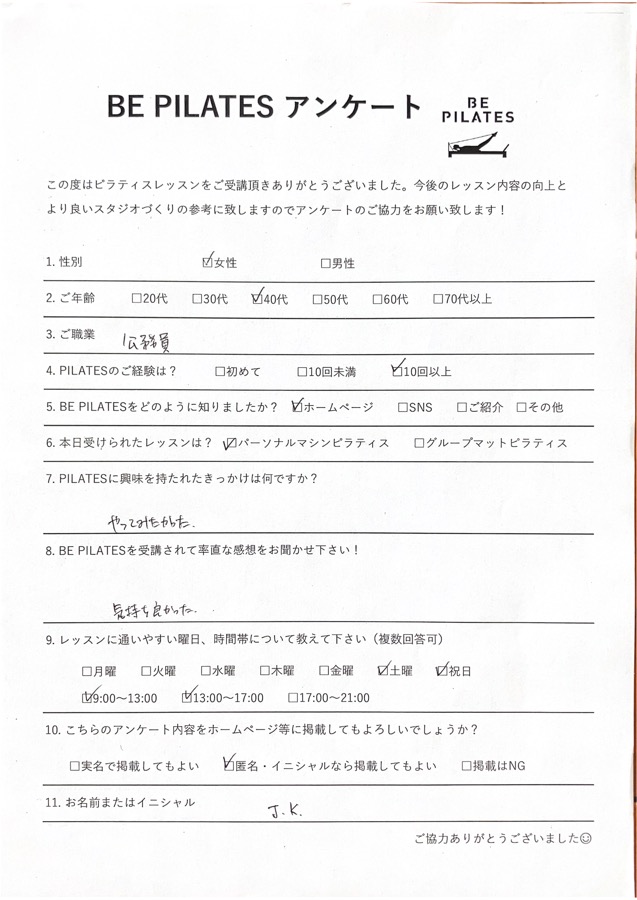 BE PILATES アンケート
BE
PILATES
この度はピラティスレッスンをご受講頂きありがとうございました。今後のレッスン内容の向上と
より良いスタジオづくりの参考に致しますのでアンケートのご協力をお願い致します！
1. 性別 ☑女性 □男性
2. ご年齢 □20代 □30代 ☑40代 □50代 □60代 □70代以上
3. ご職業 公務員
4. PILATESのご経験は？ □初めて □10回未満 ☑10回以上
5. BE PILATESをどのように知りましたか？ ☑ホームページ □SNS □ご紹介 □その他
6. 本日受けられたレッスンは？ ☑パーソナルマシンピラティス □グループマットピラティス
7. PILATESに興味を持たれたきっかけは何ですか？
やってみたかった.
8. BE PILATESを受講されて率直な感想をお聞かせ下さい！
気持ち良かった.
9. レッスンに通いやすい曜日、時間帯について教えて下さい（複数回答可）
□月曜 □火曜 □水曜 □木曜 □金曜 ☑土曜 ☑祝日
☑9:00〜13:00 ☑13:00〜17:00 □17:00〜21:00
10. こちらのアンケート内容をホームページ等に掲載してもよろしいでしょうか？
□実名で掲載してもよい ☑匿名・イニシャルなら掲載してもよい □掲載はNG
11. お名前またはイニシャル J.K.
ご協力ありがとうございました☺